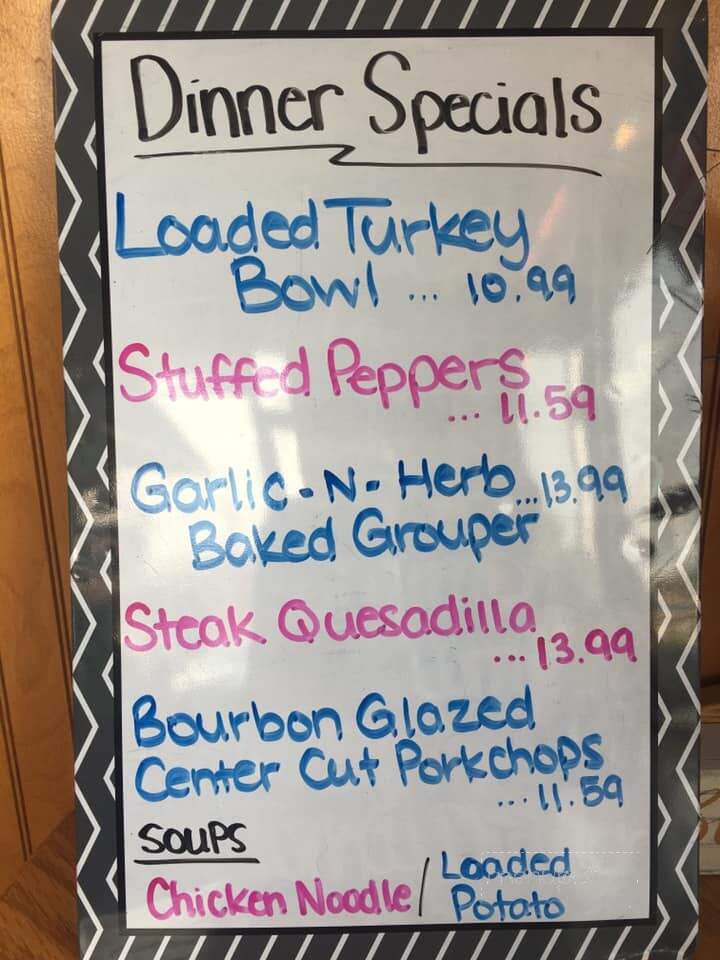 Dinner Specials
Loaded Turkey
Bowl ... 10.99
Stuffed Peppers
... 11.59
Garlic-N-Herb ...13.99
Baked Grouper
Steak Quesadilla
...13.99
Bourbon Glazed
Center Cut Porkchops
...11.59
SOUPS
Chicken Noodle / Loaded
Potato